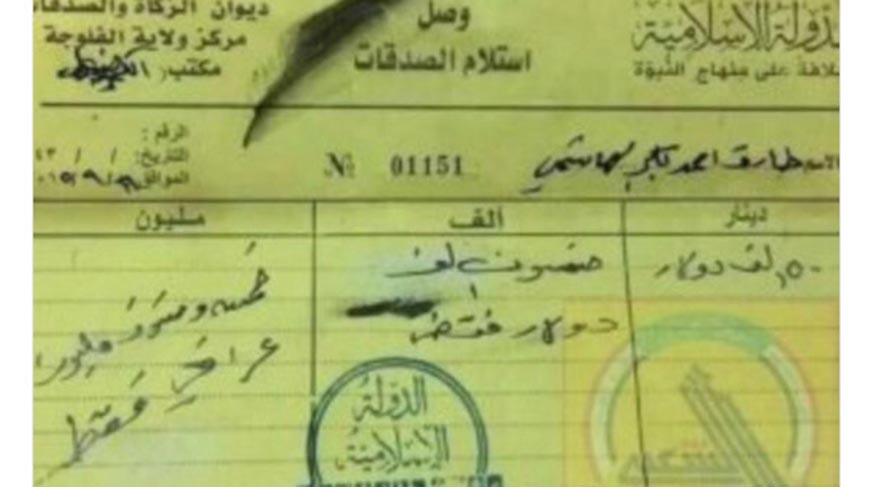 الدولة الإسلامية
خلافة على منهاج النبوة
وصل
استلام الصدقات
ديوان الزكاة والصدقات
مركز ولاية الفلوجة
مكتب
الاسم طارق احمد بكر الهاشمي
№ 01151
الرقم :
التاريخ: / /
الموافق
دينار
الف
مليون
٥٠ الف دولار
خمسون الف
دولار فقط
خمسة وستون مليون
عراقي فقط
الدولة
الإسلامية